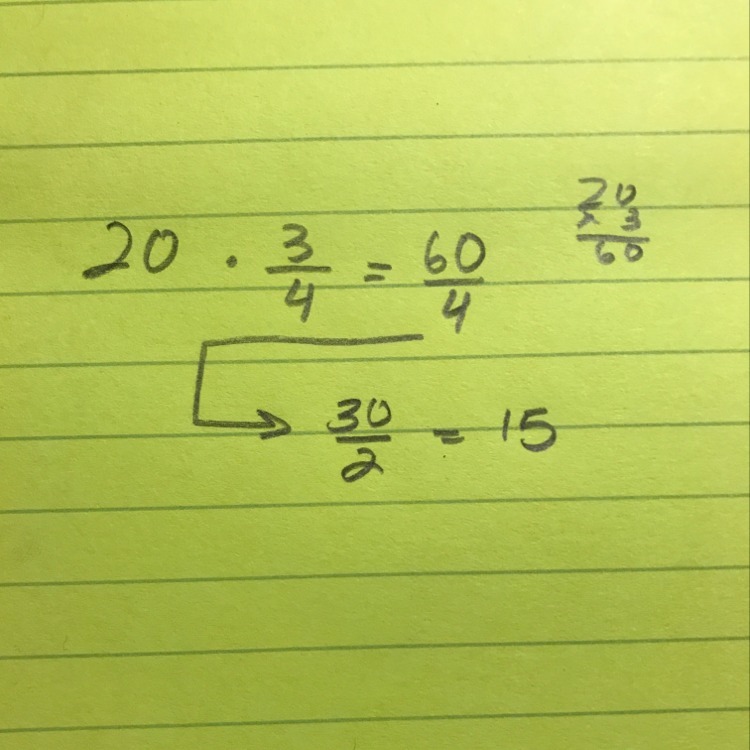 20 · 3/4 = 60/4
20
x 3
60
30/2 = 15